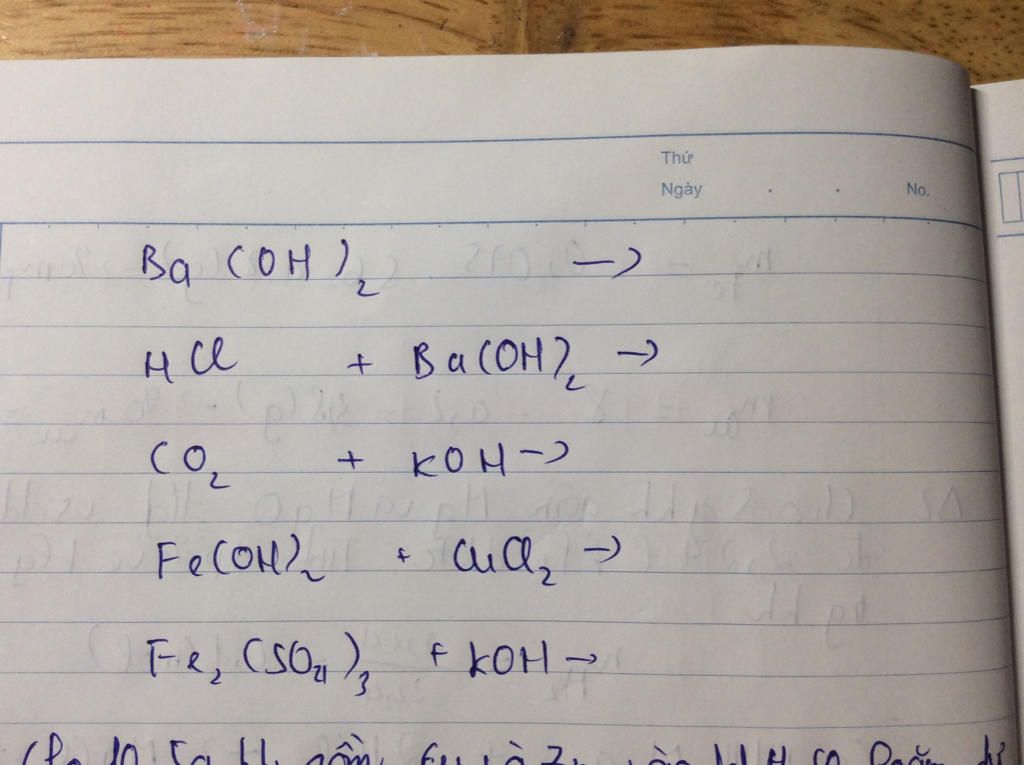 Thứ
Ngày . . No.
Ba(OH)₂ →
HCl + Ba(OH)₂ →
CO₂ + KOH →
Fe(OH)₂ + CuCl₂ →
Fe₂(SO₄)₃ + KOH →